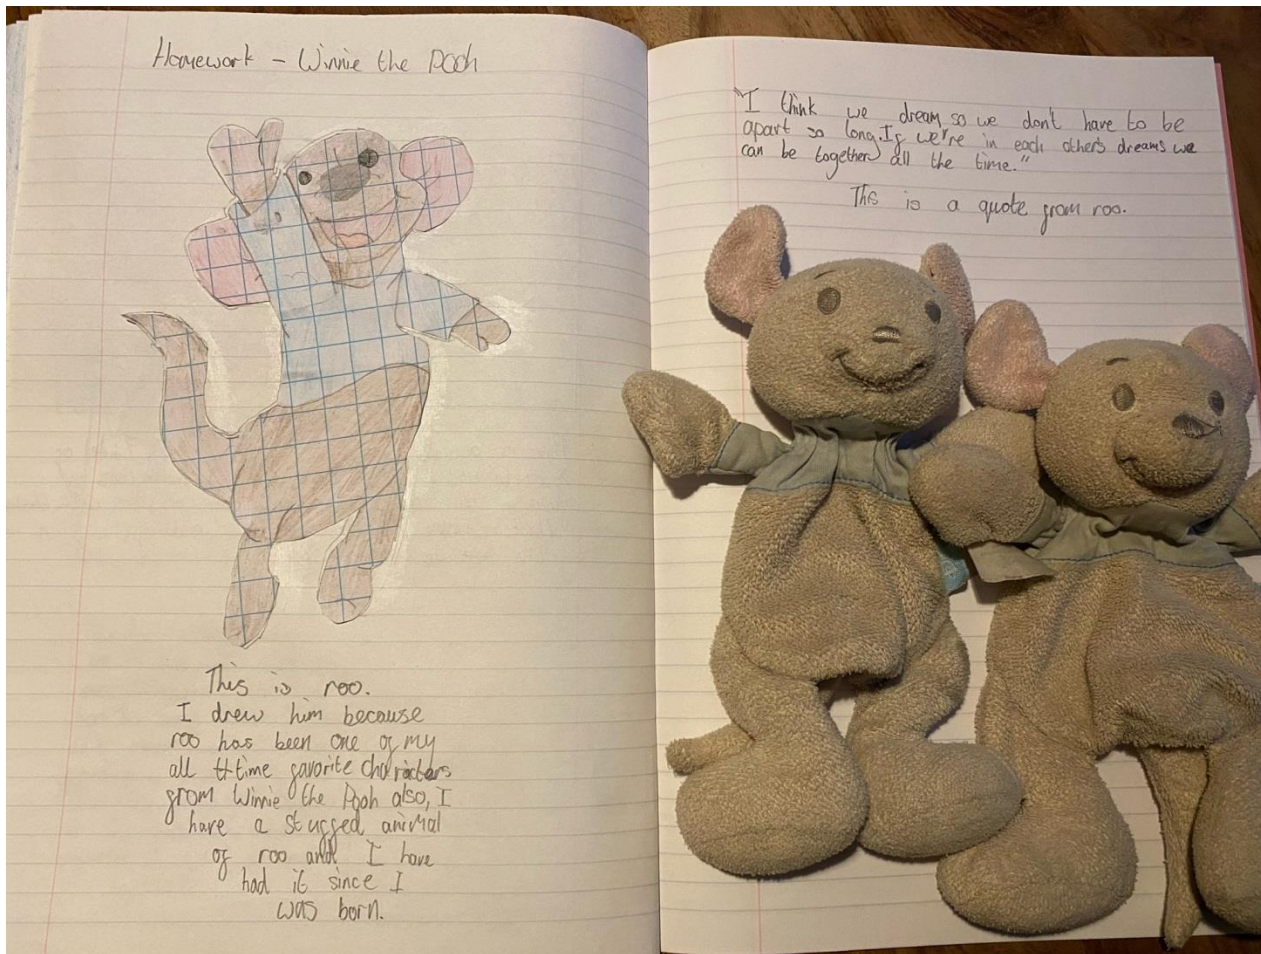 Homework - Winnie the Pooh
This is roo.
I drew him because
roo has been one of my
all time favorite characters
from Winnie the Pooh also, I
have a stuffed animal
of roo and I have
had it since I
was born.
"I think we dream so we don't have to be
apart so long. If we're in each others dreams we
can be together all the time."
This is a quote from roo.